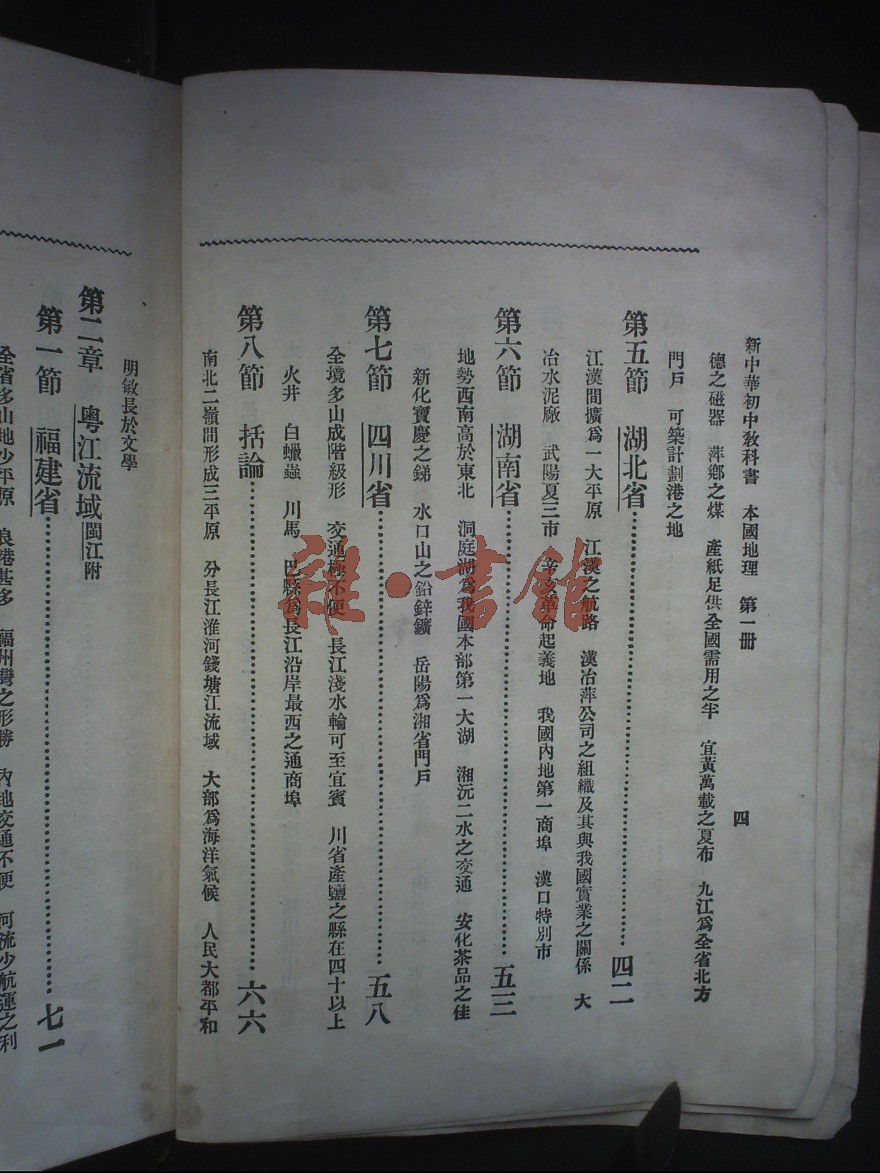 新中華初中教科書　本國地理　第一册
四
德之磁器　萍鄉之煤　產紙足供全國需用之半　宜黃萬載之夏布　九江爲全省北方
門戶　可築計劃港之地
第五節　湖北省…………四二
江漢間擴爲一大平原　江漢之航路　漢冶萍公司之組織及其與我國實業之關係　大
冶水泥廠　武陽夏三市　辛亥革命起義地　我國內地第一商埠　漢口特別市
第六節　湖南省…………五三
地勢西南高於東北　洞庭湖爲我國本部第一大湖　湘沅二水之交通　安化茶品之佳
新化寶慶之銻　水口山之鉛鋅鑛　岳陽爲湘省門戶
第七節　四川省…………五八
全境多山成階級形　交通極不便　長江淺水輪可至宜賓　川省產鹽之縣在四十以上
火井　白蠟蟲　川馬　巴縣爲長江沿岸最西之通商埠
第八節　括論…………六六
南北二嶺間形成三平原　分長江淮河錢塘江流域　大部爲海洋氣候　人民大都平和
明敏長於文學
第二章　粵江流域閩江附
第一節　福建省…………七一
全省多山地少平原　良港甚多　福州灣之形勝　內地交通不便　河流少航運之利
雜·書館